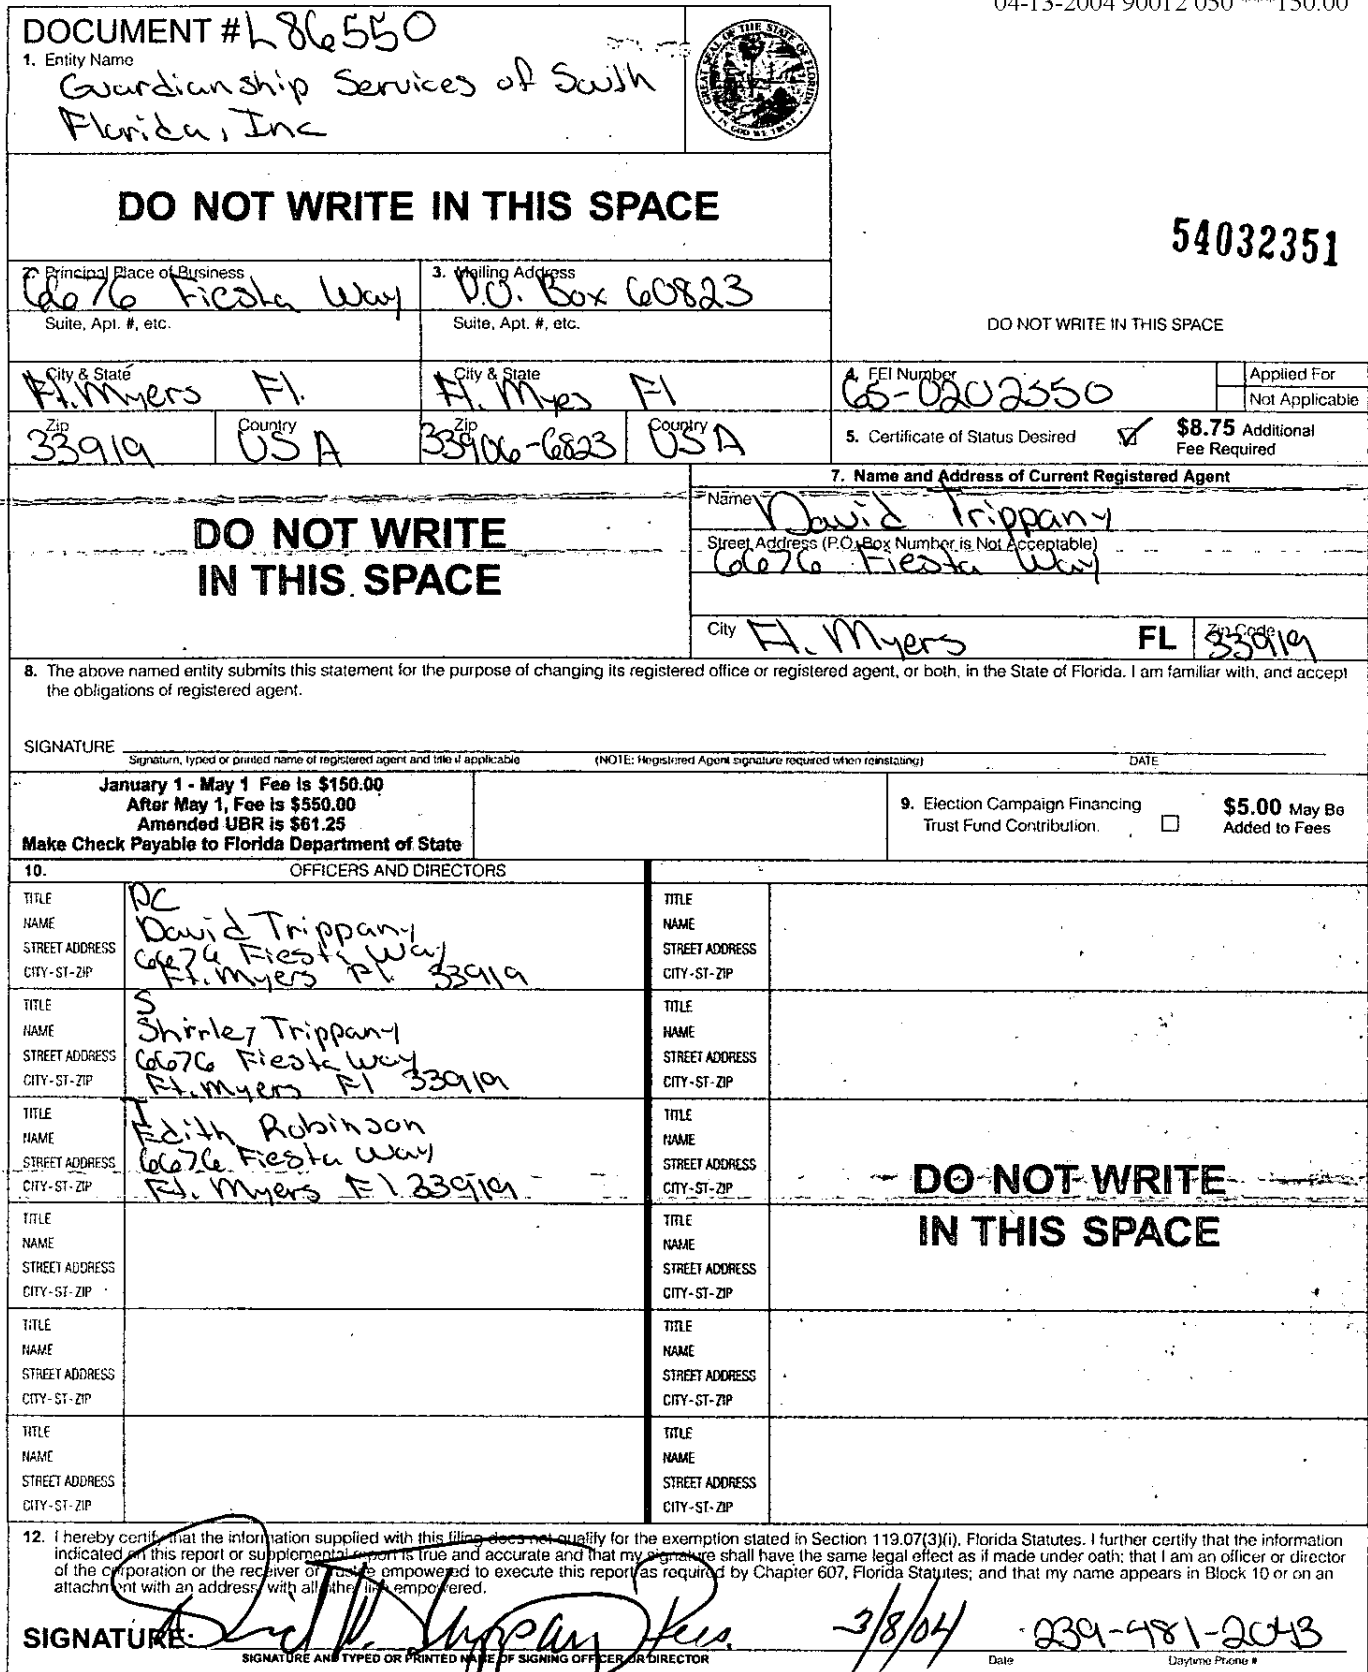 04-13-2004 90012 050 ***150.00
DOCUMENT # L86550
1. Entity Name
Guardianship Services of South
Florida, Inc
GREAT SEAL OF THE STATE OF FLORIDA
IN GOD WE TRUST
DO NOT WRITE IN THIS SPACE
54032351
2. Principal Place of Business
6676 Fiesta Way
3. Mailing Address
P.O. Box 60823
Suite, Apt. #, etc.
Suite, Apt. #, etc.
DO NOT WRITE IN THIS SPACE
City & State
Ft. Myers Fl.
City & State
Ft. Myes Fl
4. FEI Number
65-0202550
Applied For
Not Applicable
Zip
33919
Country
USA
Zip
33906-6823
Country
USA
5. Certificate of Status Desired
$8.75 Additional
Fee Required
7. Name and Address of Current Registered Agent
DO NOT WRITE
IN THIS SPACE
Name
David Trippany
Street Address (P.O. Box Number is Not Acceptable)
6676 Fiesta Way
City Ft. Myers FL
Zip Code
33919
8. The above named entity submits this statement for the purpose of changing its registered office or registered agent, or both, in the State of Florida. I am familiar with, and accept
the obligations of registered agent.
SIGNATURE
Signature, typed or printed name of registered agent and title if applicable (NOTE: Registered Agent signature required when reinstating) DATE
January 1 - May 1 Fee is $150.00
After May 1, Fee is $550.00
Amended UBR is $61.25
Make Check Payable to Florida Department of State
9. Election Campaign Financing
Trust Fund Contribution.
$5.00 May Be
Added to Fees
10. OFFICERS AND DIRECTORS
TITLE PC
NAME David Trippany
STREET ADDRESS 6676 Fiesta Way
CITY-ST-ZIP Ft. Myers Fl. 33919
TITLE
NAME
STREET ADDRESS
CITY-ST-ZIP
TITLE S
NAME Shirley Trippany
STREET ADDRESS 6676 Fiesta Way
CITY-ST-ZIP Ft. Myers Fl 33919
TITLE
NAME
STREET ADDRESS
CITY-ST-ZIP
TITLE T
NAME Edith Robinson
STREET ADDRESS 6676 Fiesta Way
CITY-ST-ZIP Ft. Myers Fl 33919
TITLE
NAME
STREET ADDRESS
CITY-ST-ZIP
DO NOT WRITE
IN THIS SPACE
TITLE
NAME
STREET ADDRESS
CITY-ST-ZIP
TITLE
NAME
STREET ADDRESS
CITY-ST-ZIP
TITLE
NAME
STREET ADDRESS
CITY-ST-ZIP
TITLE
NAME
STREET ADDRESS
CITY-ST-ZIP
TITLE
NAME
STREET ADDRESS
CITY-ST-ZIP
TITLE
NAME
STREET ADDRESS
CITY-ST-ZIP
12. I hereby certify that the information supplied with this filing does not qualify for the exemption stated in Section 119.07(3)(i), Florida Statutes. I further certify that the information
indicated on this report or supplemental report is true and accurate and that my signature shall have the same legal effect as if made under oath; that I am an officer or director
of the corporation or the receiver or trustee empowered to execute this report as required by Chapter 607, Florida Statutes; and that my name appears in Block 10 or on an
attachment with an address, with all other like empowered.
SIGNATURE: David Trippany Pres. 3/8/04 239-481-2043
SIGNATURE AND TYPED OR PRINTED NAME OF SIGNING OFFICER OR DIRECTOR Date Daytime Phone #